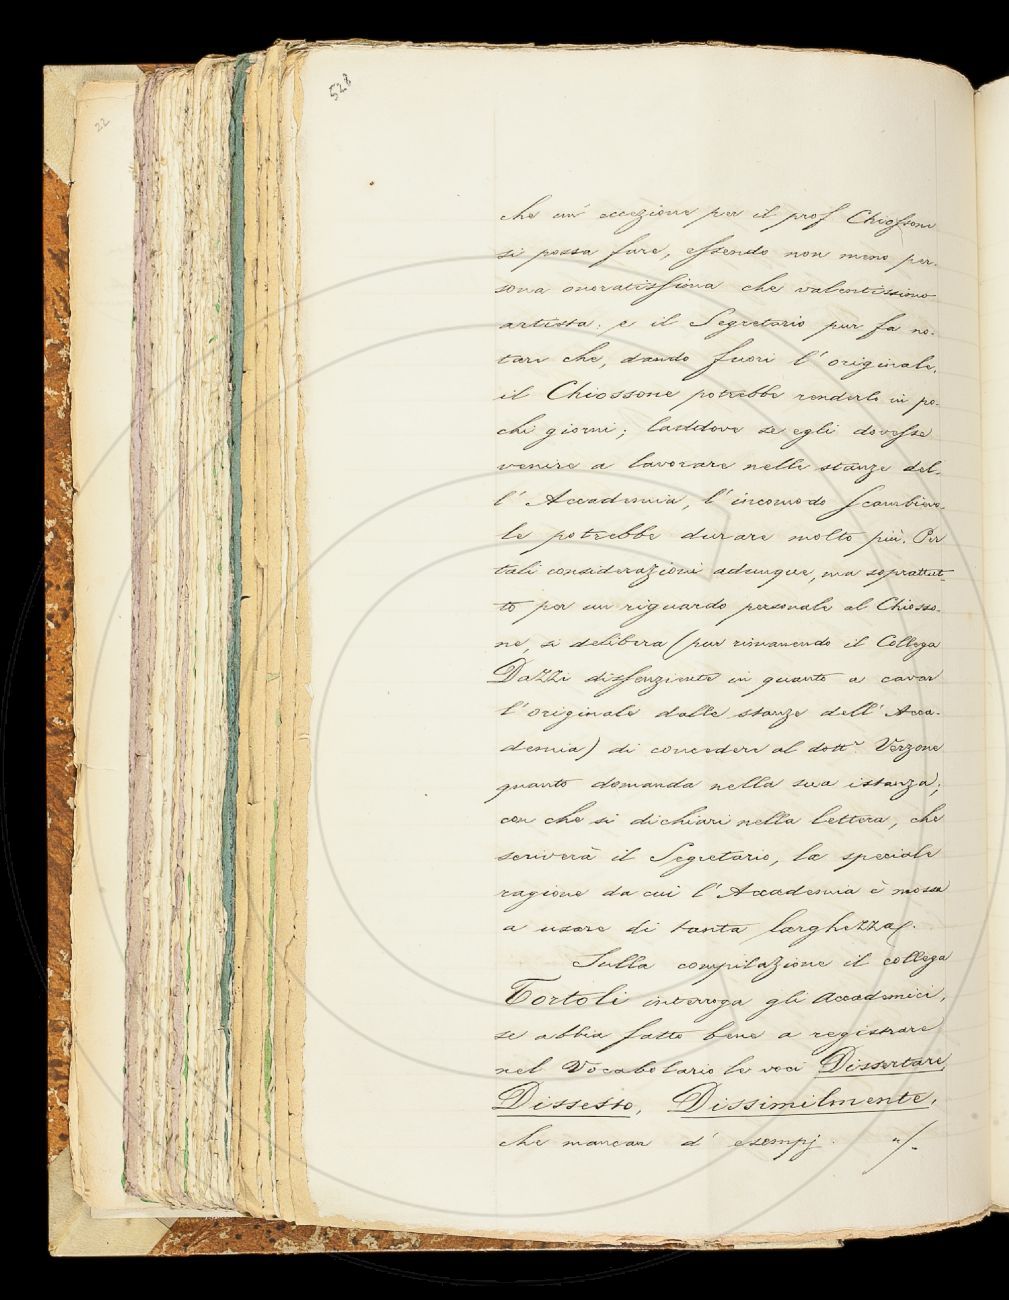 528
22
che un' eccezione per il prof Chiossone
si possa fare, essendo non meno per-
sona onoratissima che valentissimo
artista: e il Segretario pur fa no-
tare che, dando fuori l'originale,
il Chiossone potrebbe renderlo in po-
chi giorni; laddove se egli dovesse
venire a lavorare nelle stanze del-
l'Accademia, l'incomodo scambievo-
le potrebbe durare molto più. Per
tali considerazioni adunque, ma soprattut-
to per un riguardo personale al Chiosso-
ne, si delibera (pur rimanendo il Collega
Dazzi dissenziente in quanto a cavar
l'originale dalle stanze dell'Acca-
demia) di concedere al dottr. Verzone
quanto domanda nella sua istanza;
con che si dichiari nella lettera, che
scriverà il Segretario, la speciale
ragione da cui l'Accademia è mossa
a usare di tanta larghezza.
Sulla compilazione il collega
Tortoli interroga gli Accademici,
se abbia fatto bene a registrare
nel Vocabolario le voci Dissertare,
Dissesto, Dissimilmente,
che mancan d'esempj.